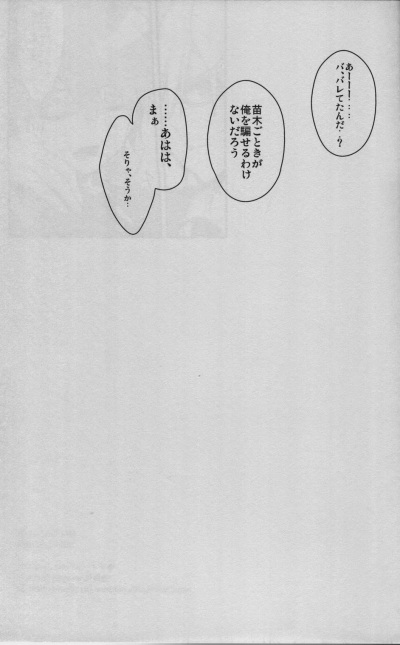 あーーー……
バ、バレてたんだ…?
苗木ごときが
俺を騙せるわけ
ないだろう
……あはは、
まぁ
そりゃ、そうか…